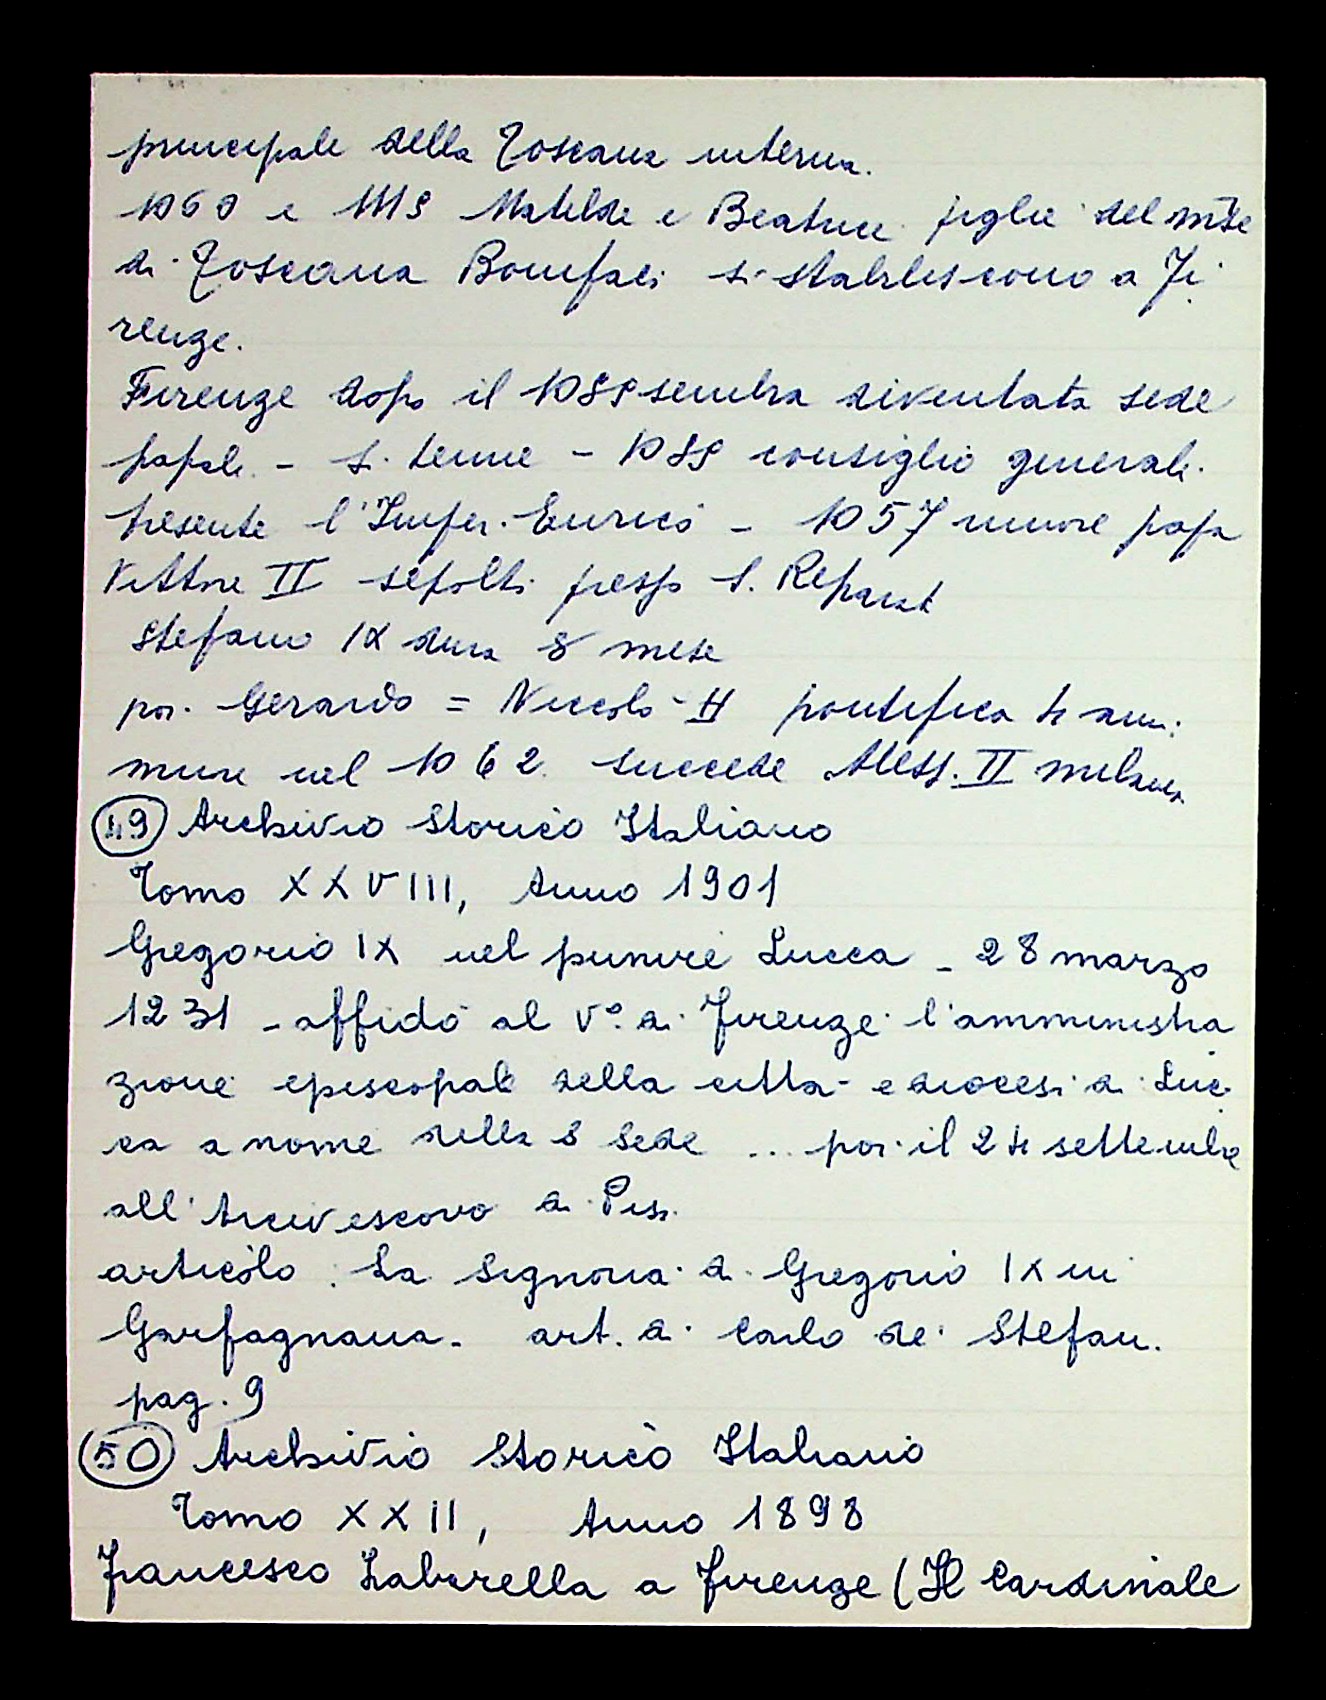 principale della Toscana interna.
1060 e 1115 Matelde e Beatrice figlie del m.se
di Toscana Bonifaci si stabiliscono a Fi
renze.
Firenze dopo il 1055 sembra diventata sede
papale - si tenne - 1055 consiglio generale.
presente l'Imper. Enrico - 1057 muore papa
Vittore II sepolto presso S. Reparat
Stefano IX dura 8 mese
poi Gerardo = Niccolò II pontefica 4 anni
muore nel 1062 succede Aless. II milanes
49 Archivio Storico Italiano
Tomo XXVIII, Anno 1901
Gregorio IX nel punire Lucca - 28 marzo
1231 - affidò al V.o di Firenze l'amministra
zione episcopale della città e diocesi di Luc
ca a nome della S Sede ... poi il 24 settembre
all'Arcivescovo di Pisa
articolo: La Signoria di Gregorio IX in
Garfagnana - art. di Carlo de Stefani.
pag. 9
50 Archivio Storico Italiano
Tomo XXII, Anno 1898
Francesco Zabarella a Firenze (Il Cardinale